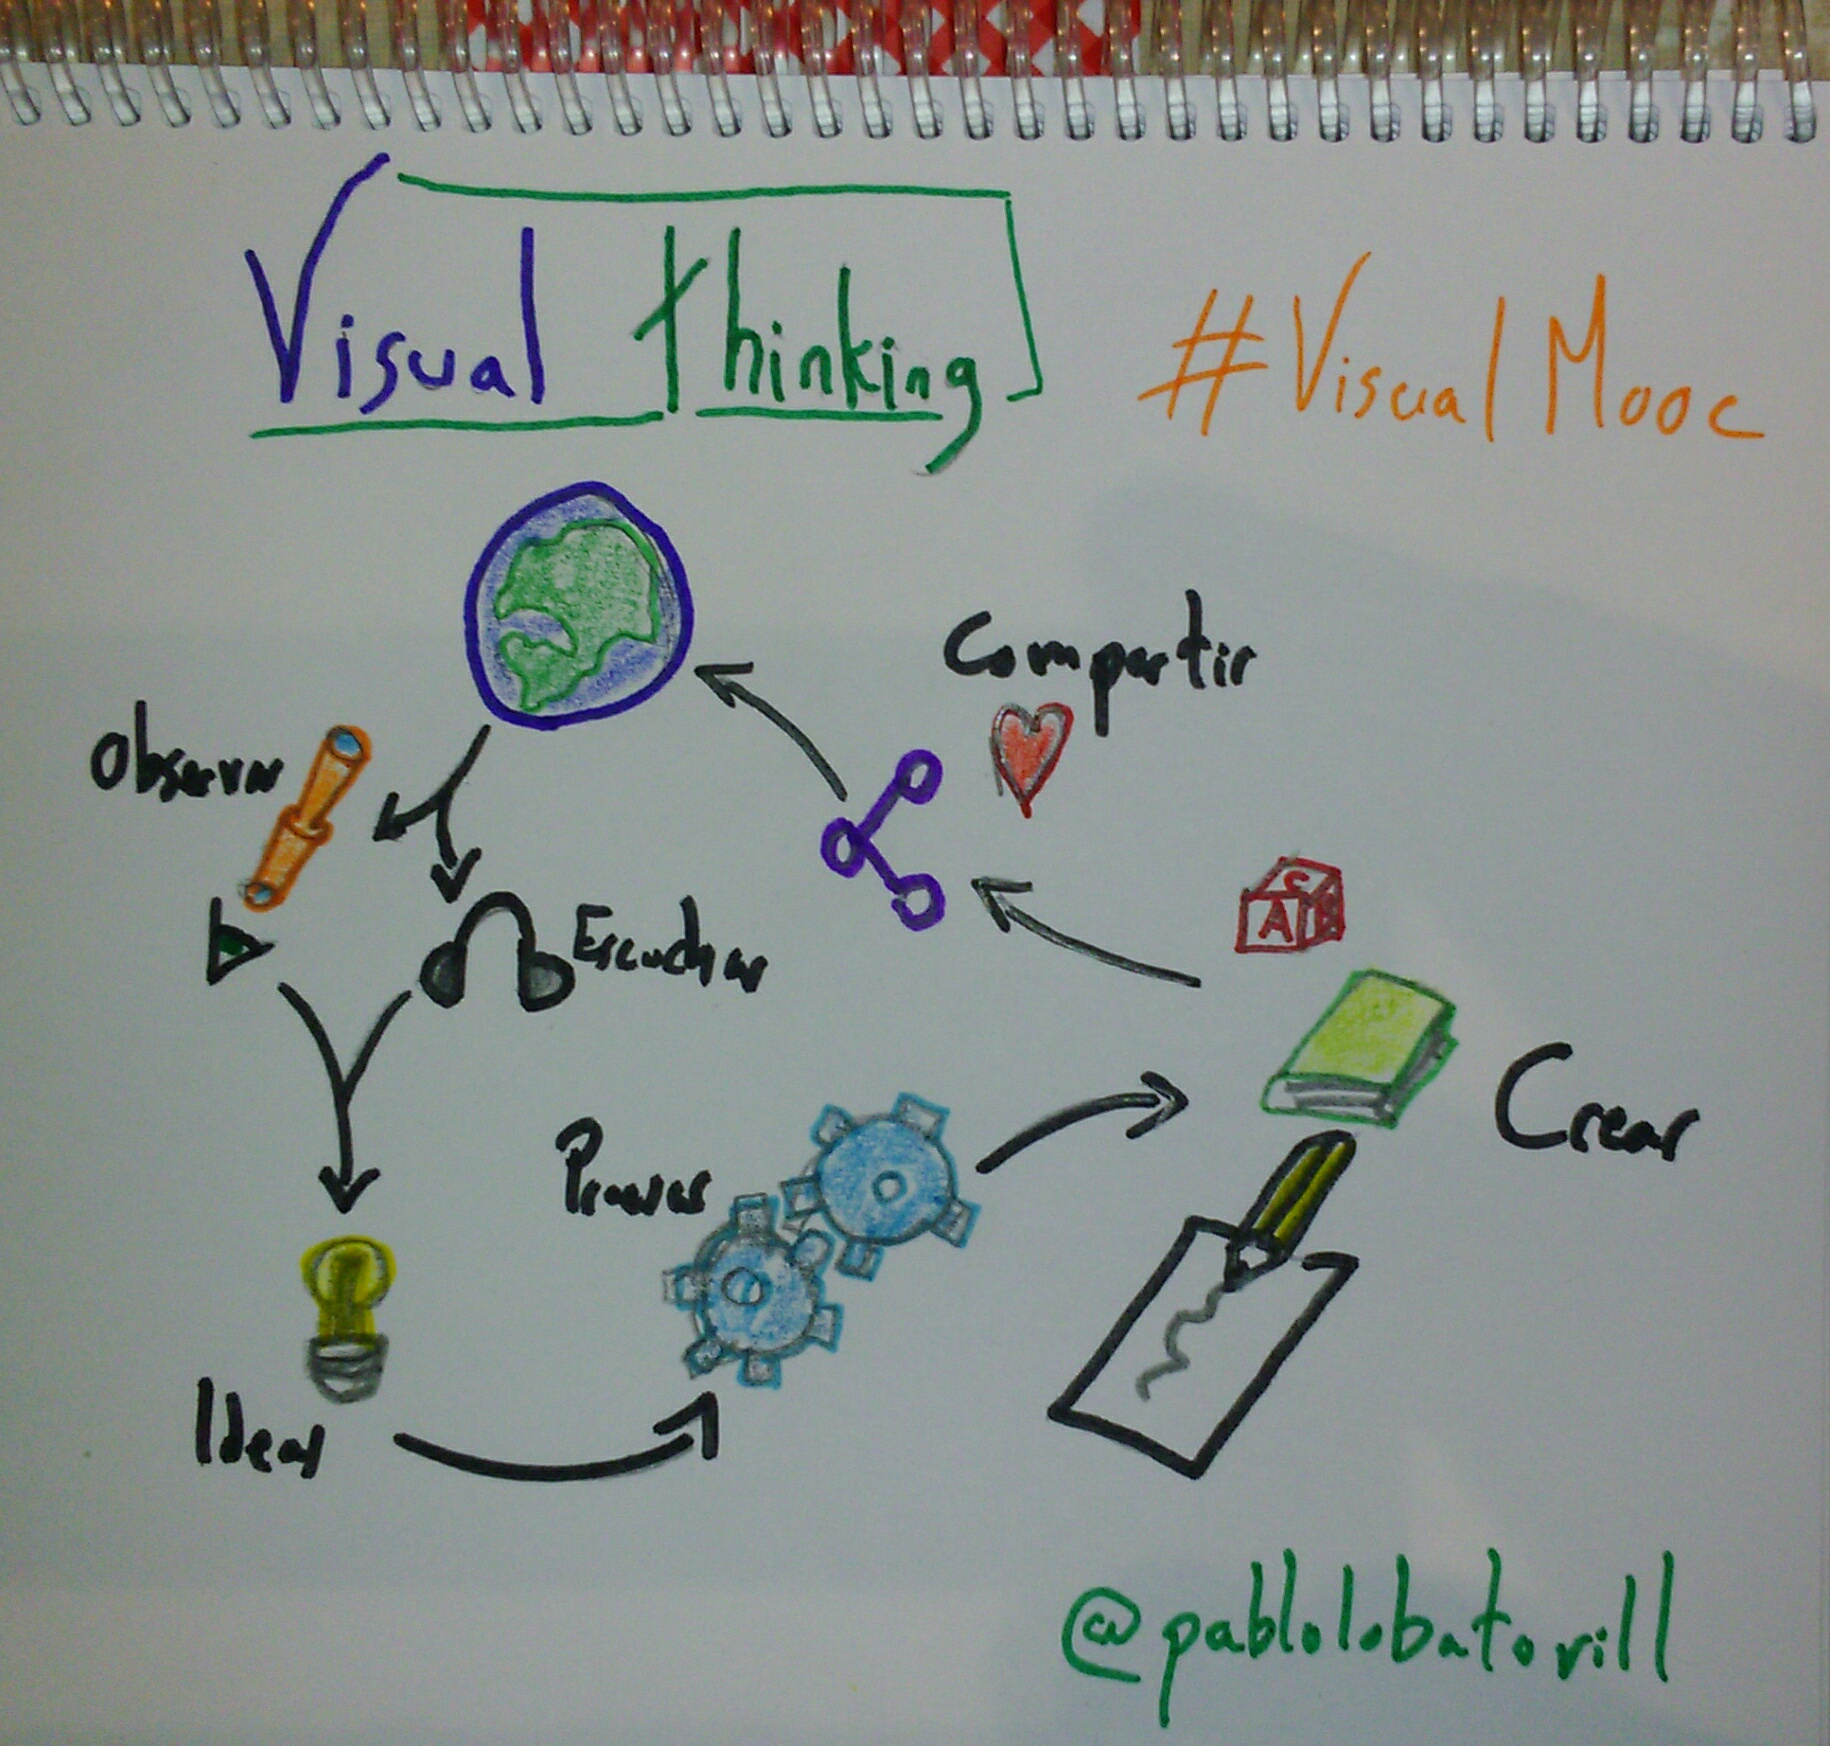 Visual thinking
#VisualMooc
Compartir
Observar
Escuchar
Idear
Crear
C
A
@pablolobatovill